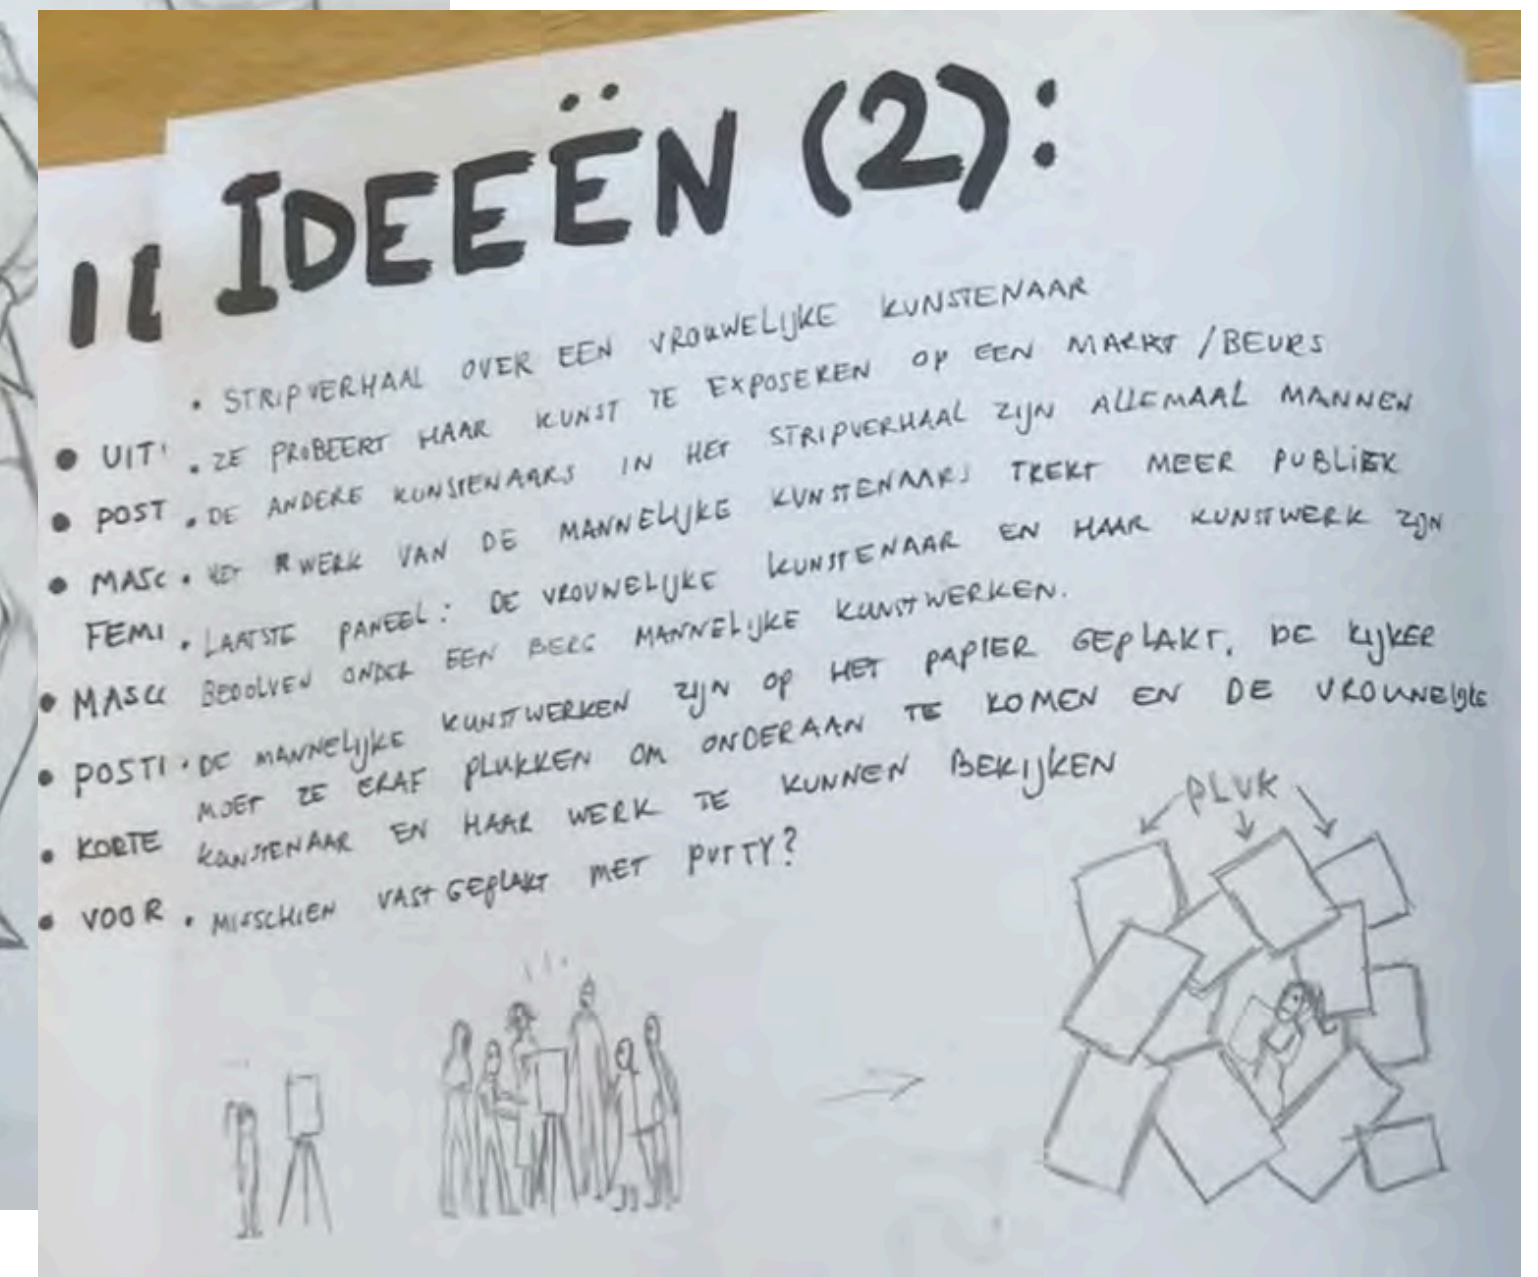 IDEEËN (2):
• STRIPVERHAAL OVER EEN VROUWELIJKE KUNSTENAAR
• ZE PROBEERT HAAR KUNST TE EXPOSEREN OP EEN MARKT / BEURS
• DE ANDERE KUNSTENAARS IN HET STRIPVERHAAL ZIJN ALLEMAAL MANNEN
• HET WERK VAN DE MANNELIJKE KUNSTENAARS TREKT MEER PUBLIEK
• LAATSTE PANEEL: DE VROUWELIJKE KUNSTENAAR EN HAAR KUNSTWERK ZIJN
BEDOLVEN ONDER EEN BERG MANNELIJKE KUNSTWERKEN.
• DE MANNELIJKE KUNSTWERKEN ZIJN OP HET PAPIER GEPLAKT. DE KIJKER
MOET ZE ERAF PLUKKEN OM ONDERAAN TE KOMEN EN DE VROUWELIJKE
KUNSTENAAR EN HAAR WERK TE KUNNEN BEKIJKEN
• MISSCHIEN VASTGEPLAKT MET PUTTY?
PLUK
• UIT
• POST
• MASC
FEMI
• MASCU
• POSTI
• KORTE
• VOOR